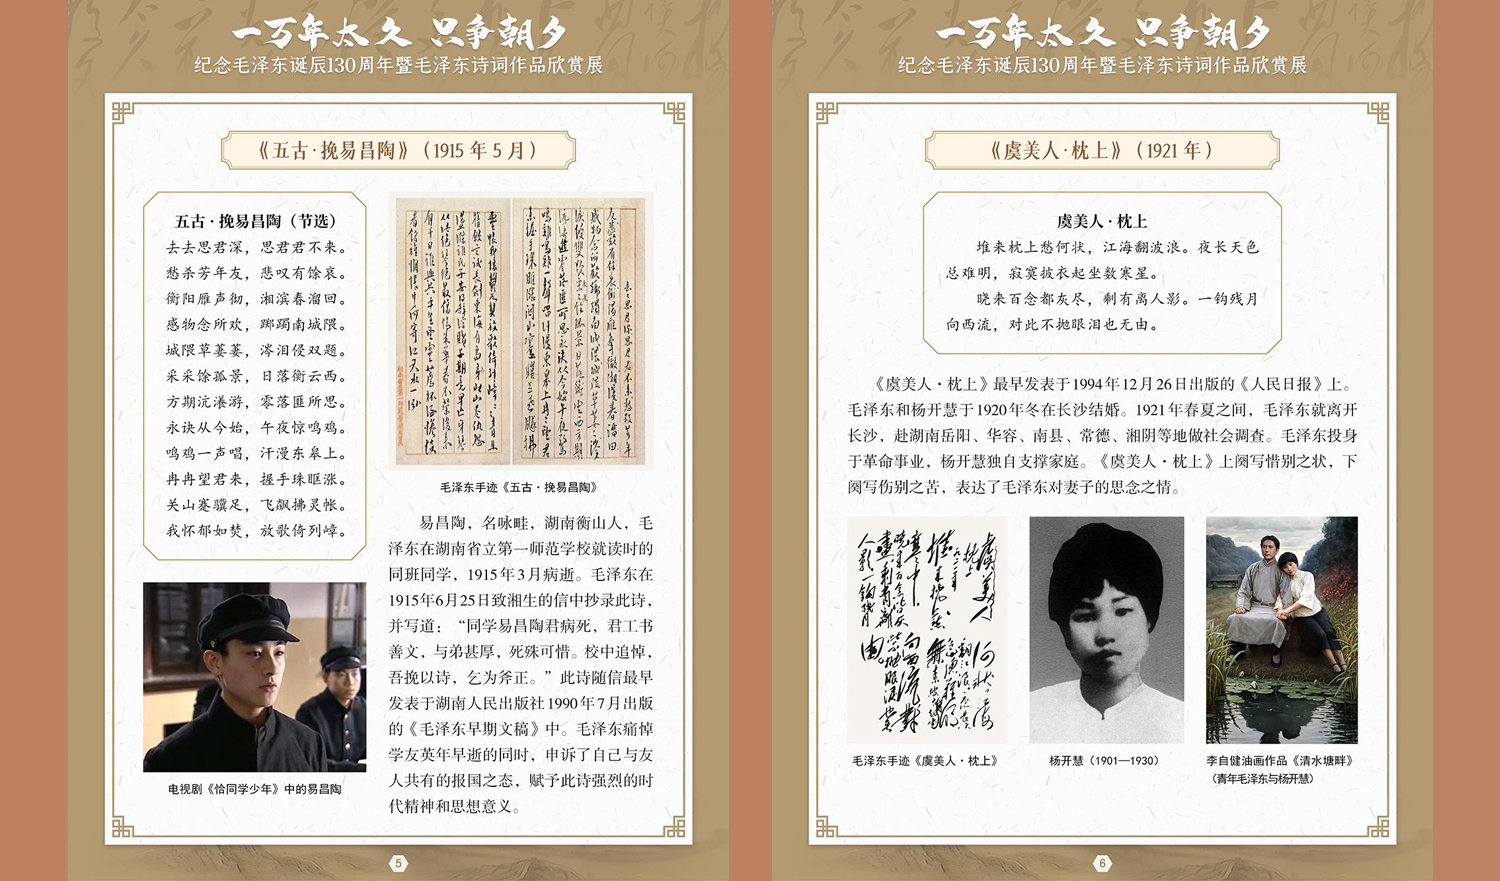 一万年太久 只争朝夕
纪念毛泽东诞辰130周年暨毛泽东诗词作品欣赏展
《五古·挽易昌陶》（1915 年 5 月）
五古·挽易昌陶（节选）
去去思君深，思君君不来。
愁杀芳年友，悲叹有馀哀。
衡阳雁声彻，湘滨春溜回。
感物念所欢，踯躅南城隈。
城隈草萋萋，涔泪侵双题。
采采馀孤景，日落衡云西。
方期沆瀁游，零落匪所思。
永诀从今始，午夜惊鸣鸡。
鸣鸡一声唱，汗漫东皋上。
冉冉望君来，握手珠眶涨。
关山蹇骥足，飞飙拂灵帐。
我怀郁如焚，放歌倚列嶂。
电视剧《恰同学少年》中的易昌陶
毛泽东手迹《五古·挽易昌陶》
易昌陶，名咏畦，湖南衡山人，毛
泽东在湖南省立第一师范学校就读时的
同班同学，1915 年 3 月病逝。毛泽东在
1915年6月25日致湘生的信中抄录此诗，
并写道：“同学易昌陶君病死，君工书
善文，与弟甚厚，死殊可惜。校中追悼，
吾挽以诗，乞为斧正。”此诗随信最早
发表于湖南人民出版社1990 年 7 月出版
的《毛泽东早期文稿》中。毛泽东痛悼
学友英年早逝的同时，申诉了自己与友
人共有的报国之态，赋予此诗强烈的时
代精神和思想意义。
5
一万年太久 只争朝夕
纪念毛泽东诞辰130周年暨毛泽东诗词作品欣赏展
《虞美人·枕上》（1921 年）
虞美人·枕上
堆来枕上愁何状，江海翻波浪。夜长天色
总难明，寂寞披衣起坐数寒星。
晓来百念都灰尽，剩有离人影。一钩残月
向西流，对此不抛眼泪也无由。
《虞美人·枕上》最早发表于 1994 年 12 月 26 日出版的《人民日报》上。
毛泽东和杨开慧于 1920 年冬在长沙结婚。1921 年春夏之间，毛泽东就离开
长沙，赴湖南岳阳、华容、南县、常德、湘阴等地做社会调查。毛泽东投身
于革命事业，杨开慧独自支撑家庭。《虞美人·枕上》上阕写惜别之状，下
阕写伤别之苦，表达了毛泽东对妻子的思念之情。
毛泽东手迹《虞美人·枕上》
杨开慧（1901—1930）
李自健油画作品《清水塘畔》
（青年毛泽东与杨开慧）
6